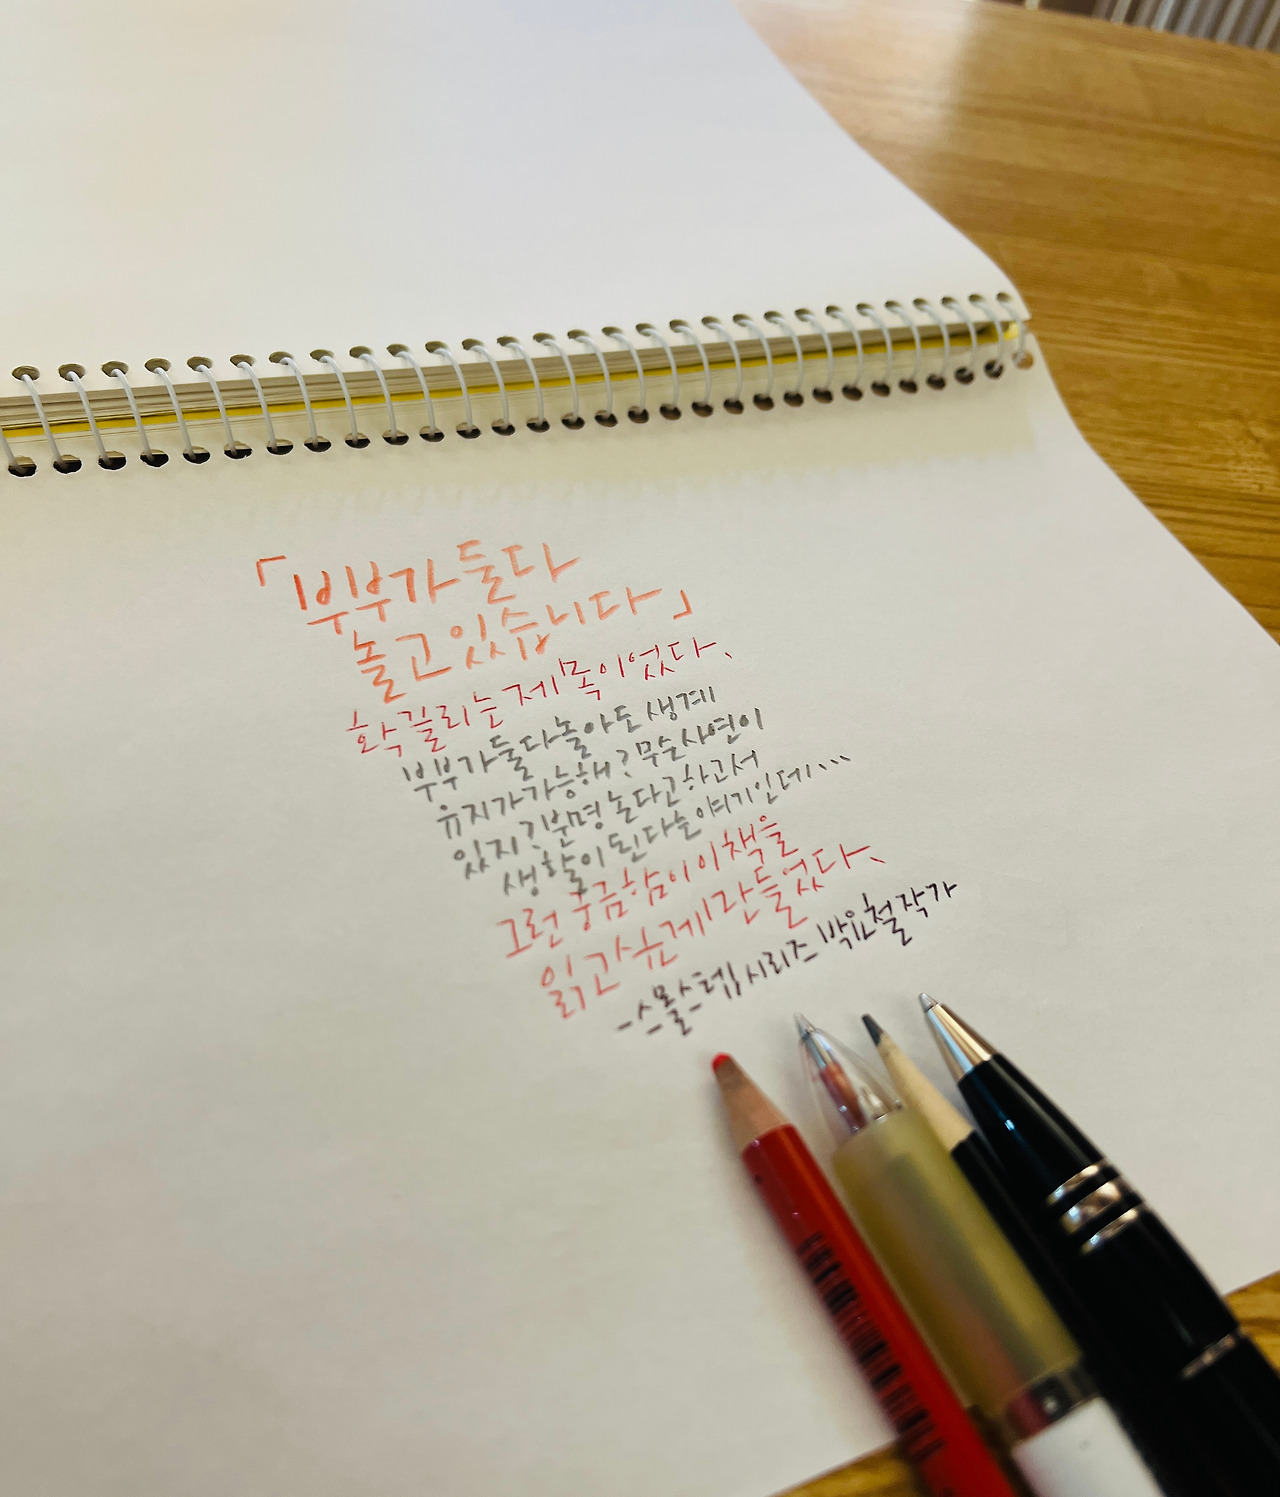 「부부가 둘다
놀고 있습니다」
확 끌리는 제목이었다.
부부가 둘다 놀아도 생계
유지가 가능해? 무슨 사연이
있지? 분명 논다고 하고서
생활이 된다는 얘기인데...
그런 궁금함이 이 책을
읽고 싶게 만들었다.
- 스몰스텝 시리즈 박요철 작가